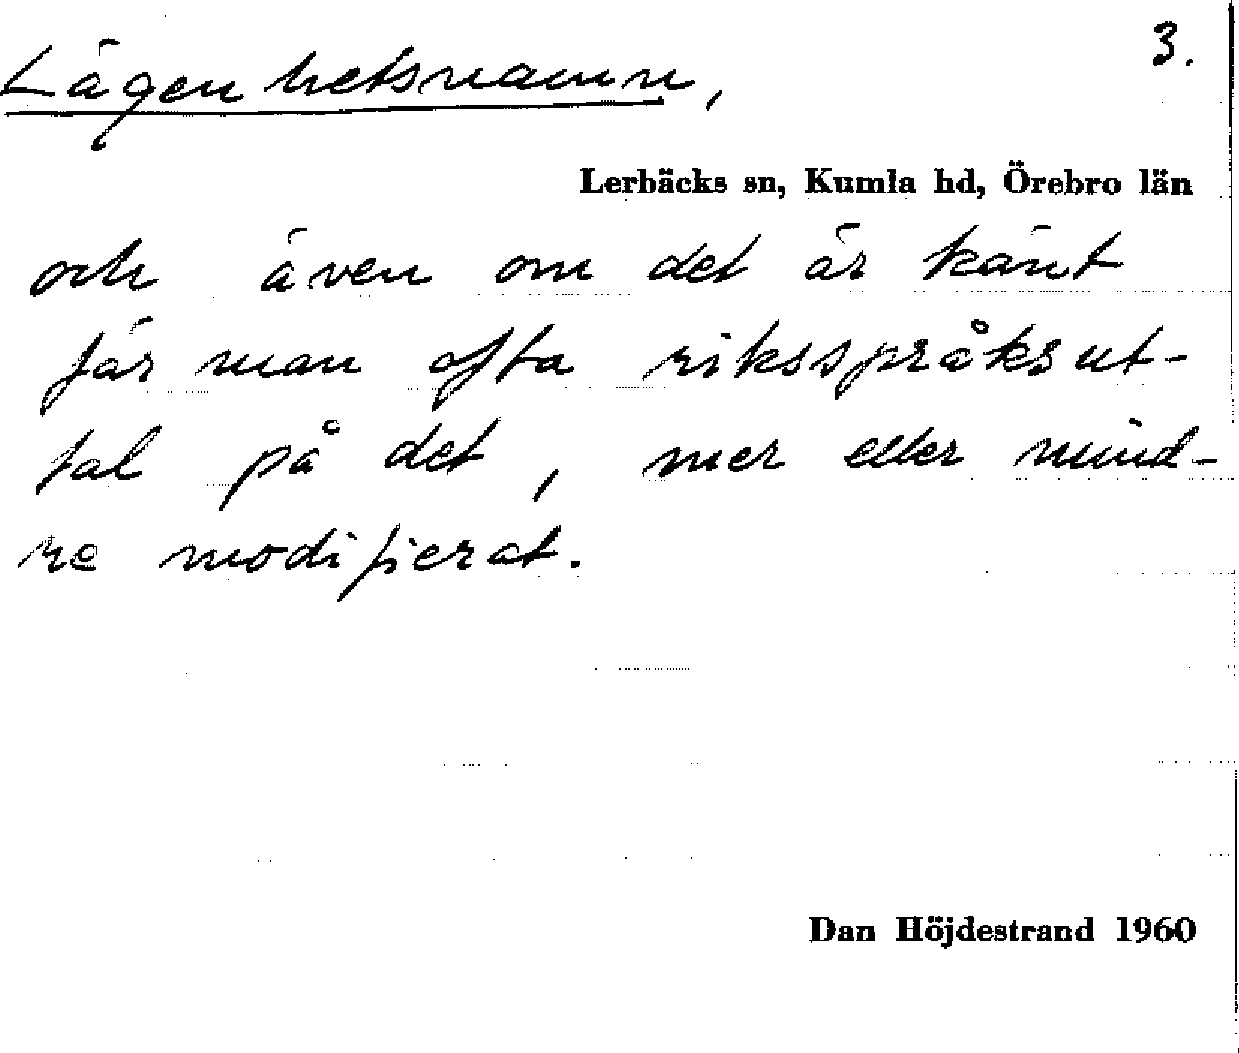 3.
Lägenhetsnamn,
Lerbäcks sn, Kumla hd, Örebro län
och även om det är känt
får man ofta riksspråksut-
tal på det, mer eller mind-
re modifierat.
Dan Höjdestrand 1960